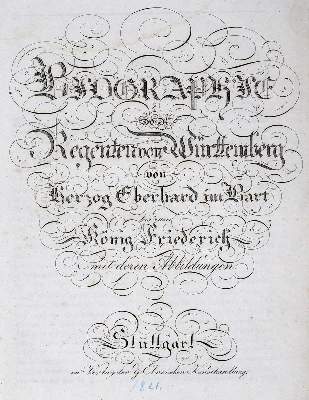 BIOGRAPHIE
der
Regenten von Württemberg
von
Herzog Eberhard im Bart
bis zum
König Friederich
mit deren Abbildungen
Stuttgart
im Verlag der G.
1821.